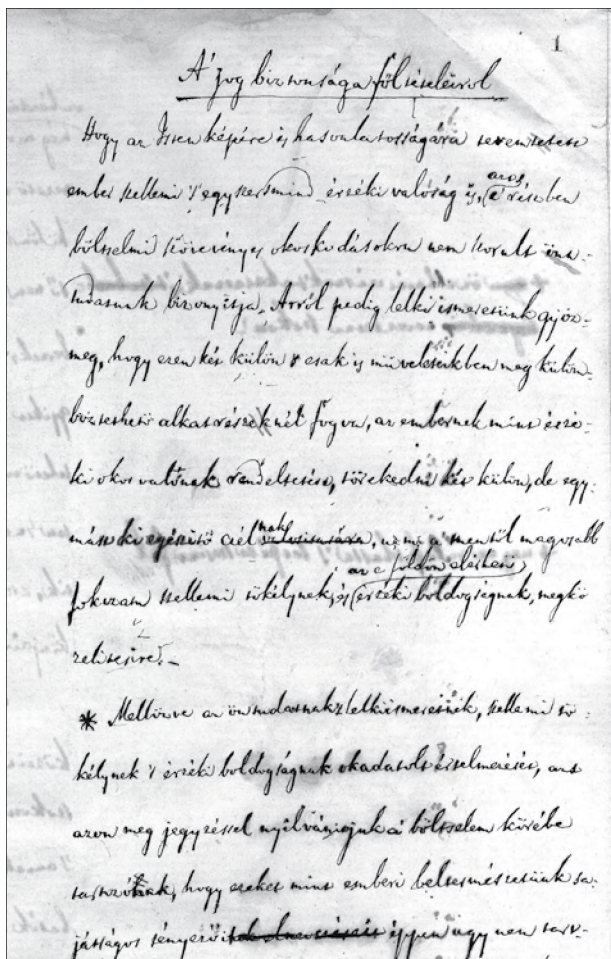 1
A' jog biztonsága föltételeiről
Hogy az Isten képére és hasonlatosságára teremtetett
ember szellemi 's egyszersmind érzéki valóság is, azt e részben
bölcselmi szövevényes okoskodásokra nem szorult önn-
tudatunk bizonyítja. Arról pedig lelkiismeretünk győz-
meg, hogy ezen két külön 's csak is műveleteikben meg külön-
böztethető alkatrészeknél fogva, az embernek mint érzé-
ki okos valónak rendeltetése, törekedni két külön, de egy-
mást ki egészítő czélnak, u. m. a' mentől magasabb
az e földön elérhető
fokozatú szellemi tökélynek, és érzéki boldogságnak, megkö
zelítésére. –
* Mellőzve az öntudatnak, lelkiismeretnek, szellemi tö-
kélynek 's érzéki boldogságnak okadatolt értelmezését, azt
azon meg jegyzéssel nyilvánítjuk a' bölcselem körébe
tartozónak, hogy ezeket mint emberi beltermészetünk sa-
játságos tényezőit éppen úgy nem tart-